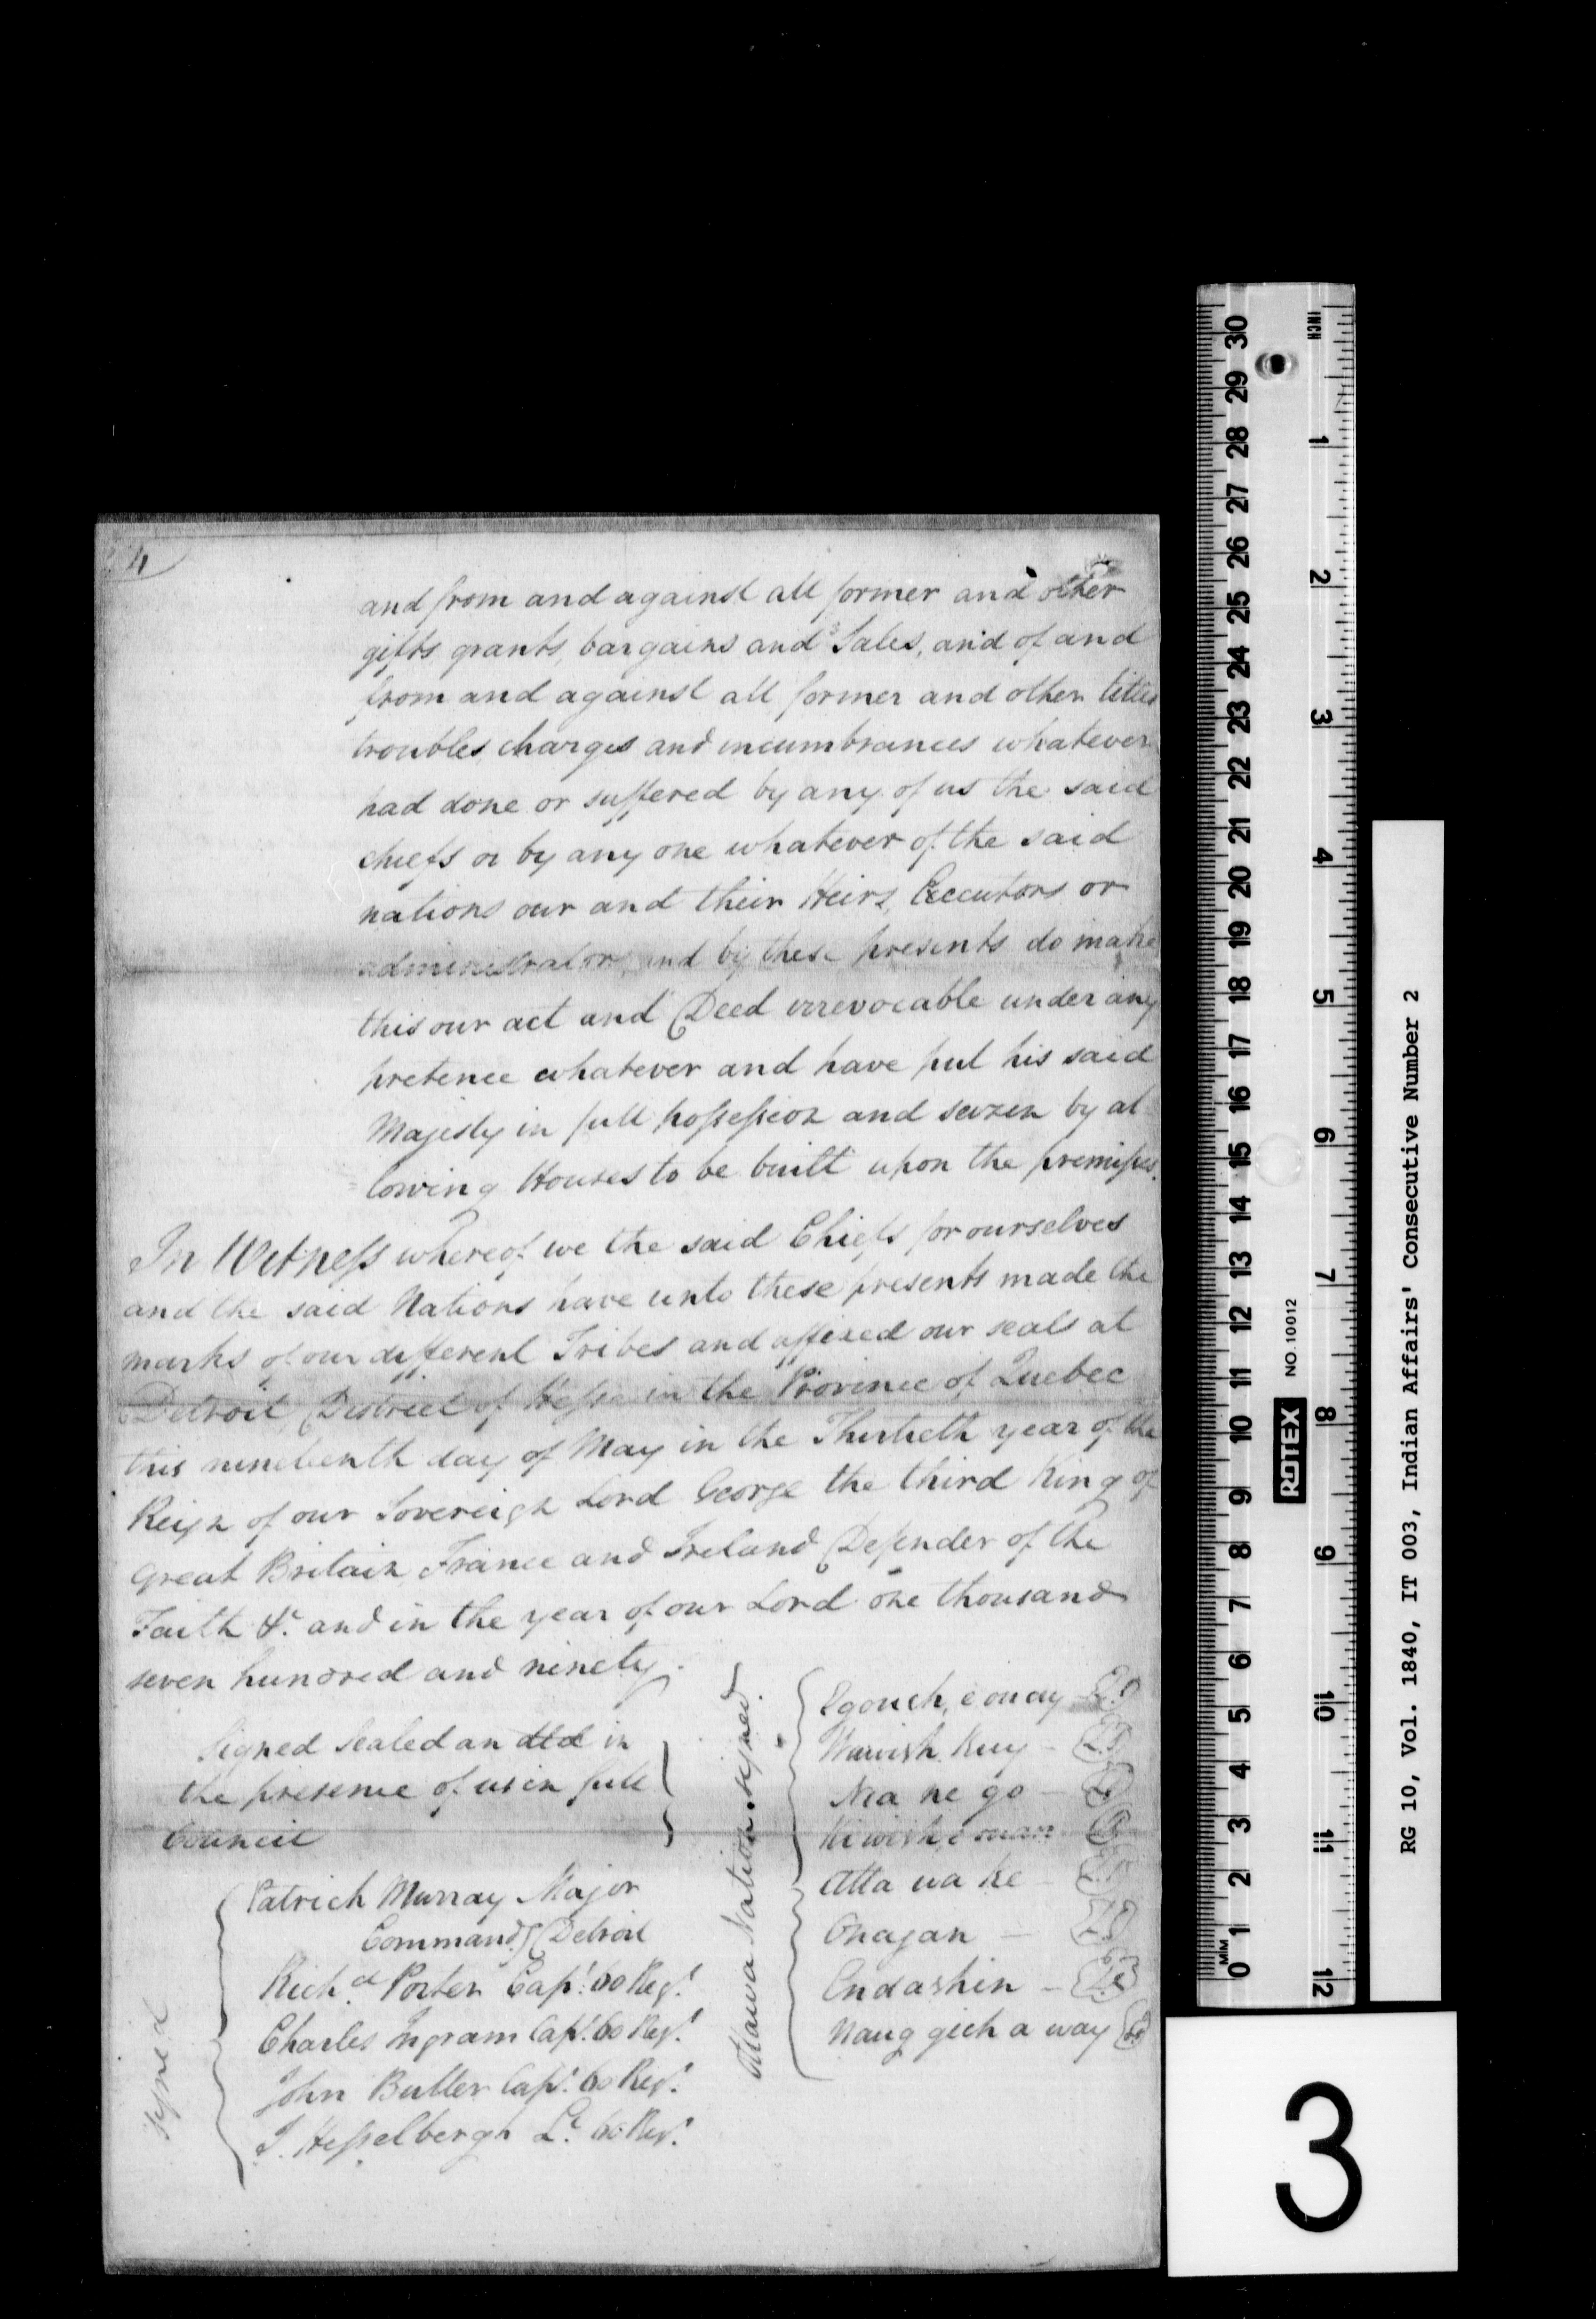 4
and from and against all former and other
gifts grants, bargains and Sales, and of and
from and against all former and other titles
troubles, charges and incumbrances whatever
had done or suffered by any of us the said
chiefs or by any one whatever of the said
nations our and their Heirs, Executors or
administrators, and by these presents do make
this our act and Deed irrevocable under any
pretence whatever and have put his said
Majesty in full possession and seizen by al
lowing Houses to be built upon the premises.
In Witness whereof we the said Chiefs for ourselves
and the said Nations have unto these presents made the
marks of our different Tribes and affixed our seals at
Detroit District of Hesse in the Province of Quebec
this nineteenth day of May in the Thirtieth year of the
Reign of our Sovereign Lord George the third King of
Great Britain France and Ireland Defender of the
Faith &c. and in the year of our Lord one thousand
seven hundred and ninety.
Signed Sealed an dld in
the presence of us in full
Council
signed
Patrick Murray Major
Commandg Detroit
Richd Porter Capt. 60 Regt.
Charles Ingram Capt. 60 Regt.
John Butler Capt. 60 Regt.
J. Hesselbergh Lt. 60 Regt.
Ottawa Nation signed.
Egouch, e ouay L.S
Wawish Kuy - L.S
Nia ne go - L.S
Ki wich, e ouan - L.S
Atta wa ke - L.S
Onagan - L.S
Endashin - L.S
Naug gich a way L.S
INCH
MM
NO. 10012
ROTEX
RG 10, Vol. 1840, IT 003, Indian Affairs' Consecutive Number 2
3